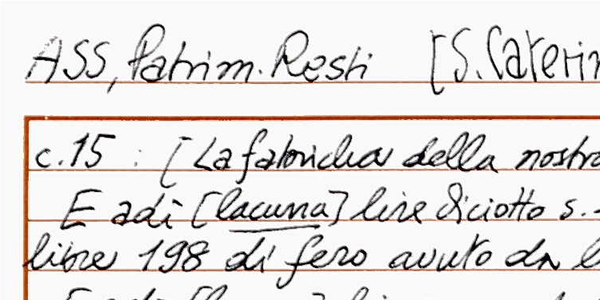 ASS, Patrim. Resti [S. Caterin
c. 15 : [La fabricha della nostra
E adì [lacuna] lire diciotto s.
libre 198 di fero avuto da l
E adì [lacuna] li